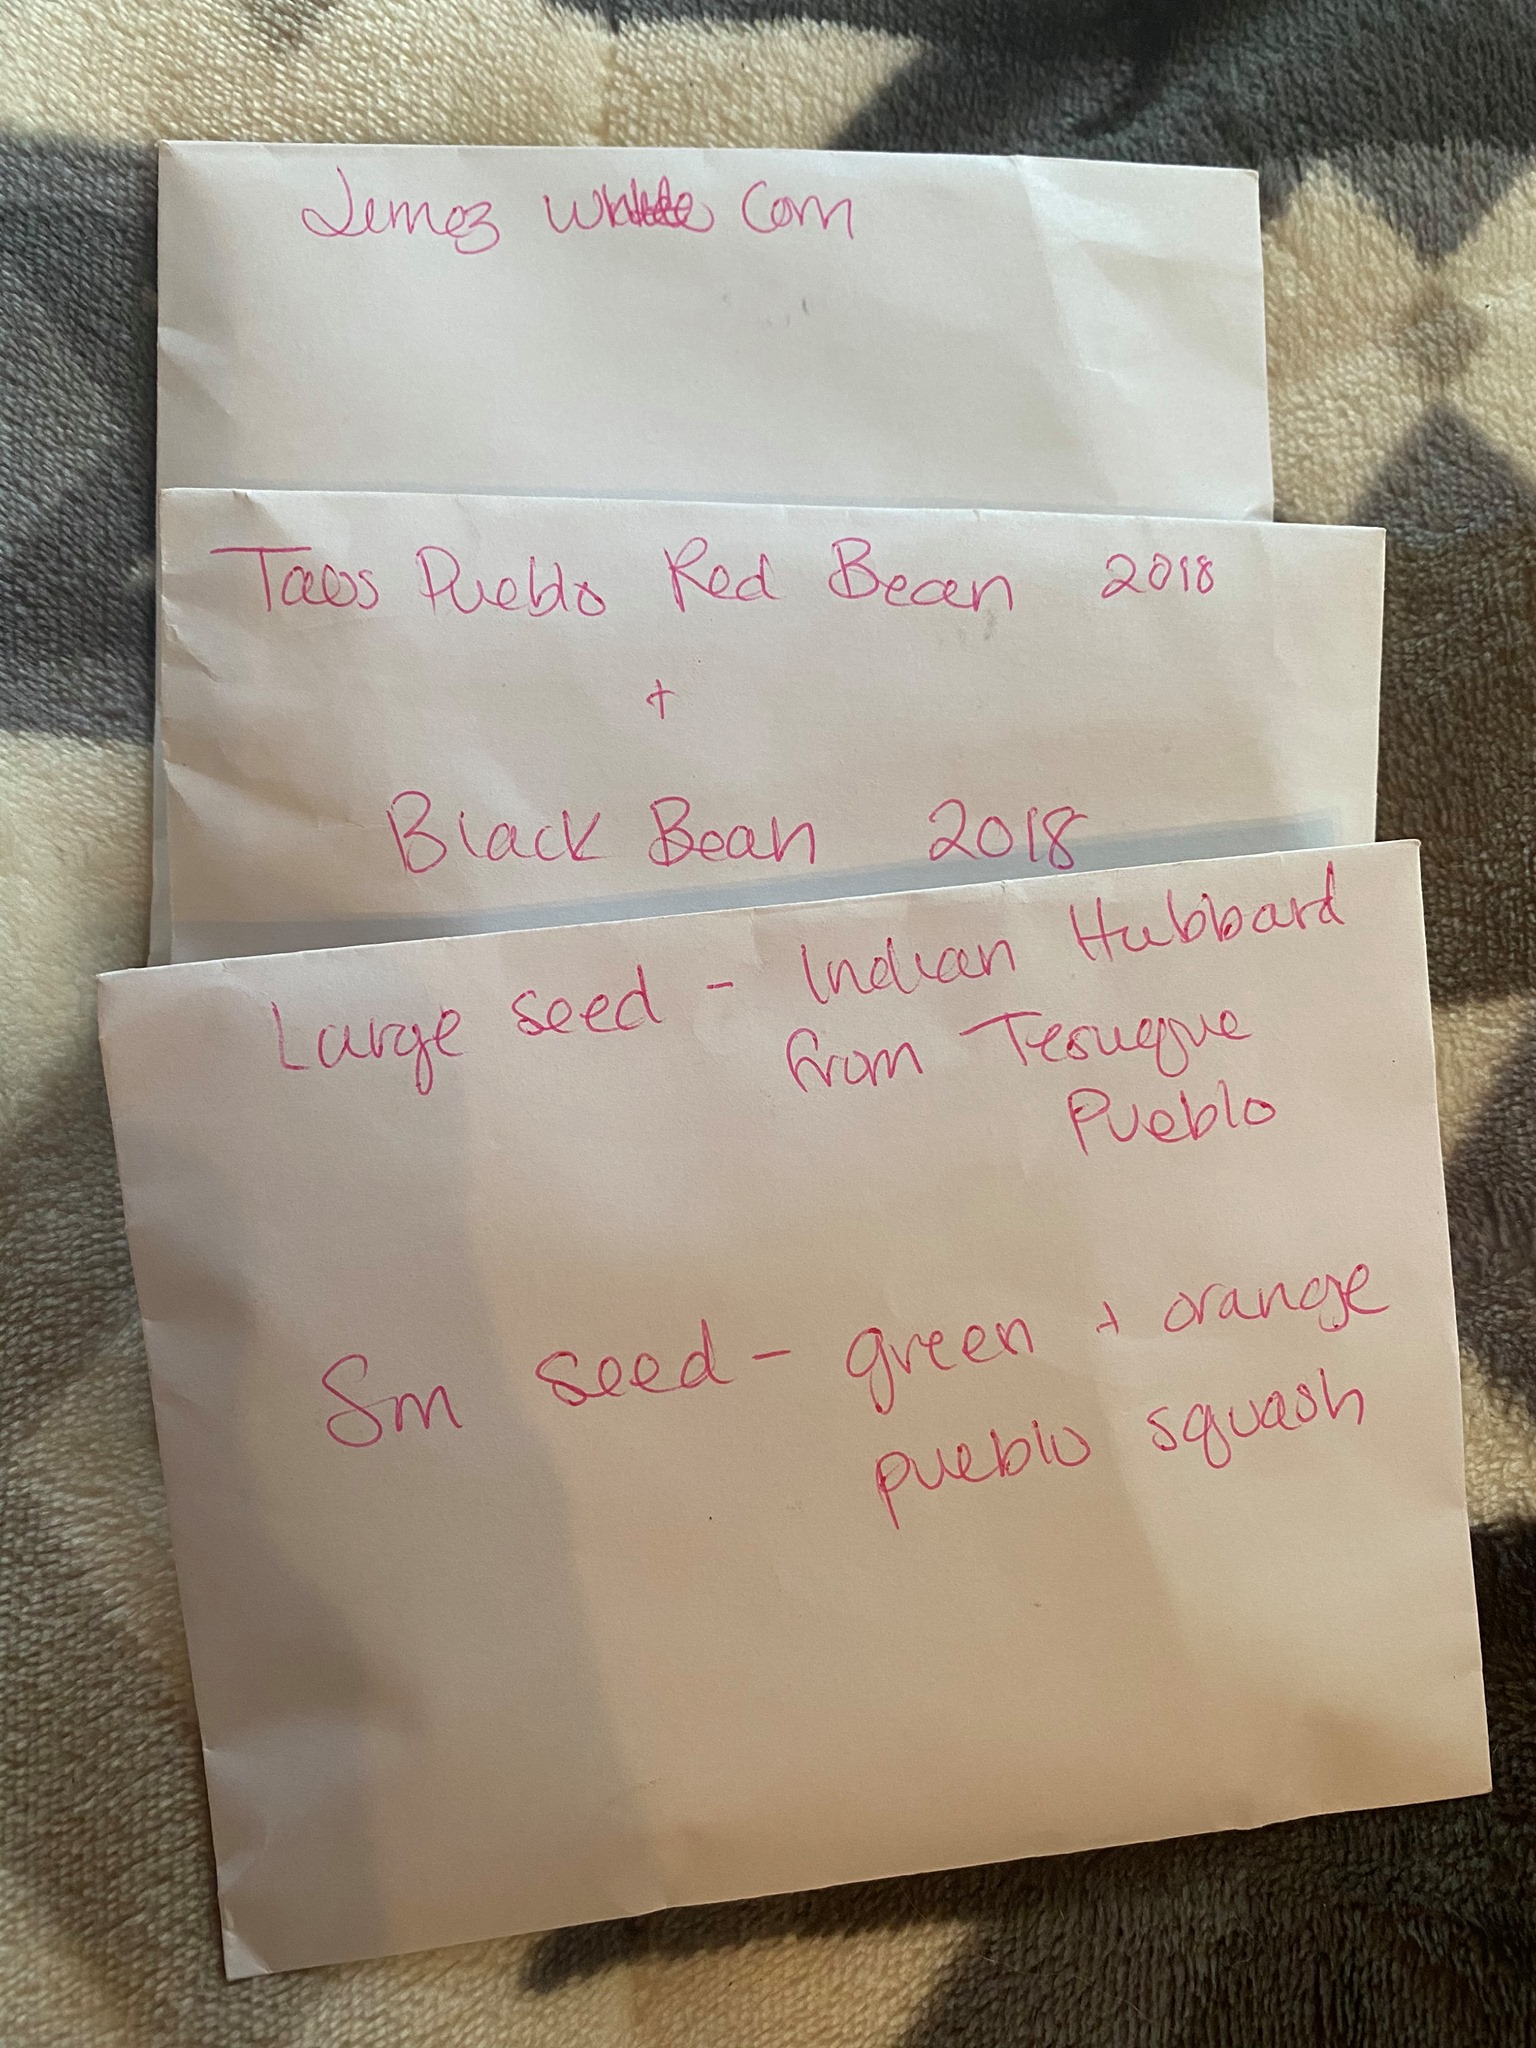 Jemez White Corn
Taos Pueblo Red Bean 2018
+
Black Bean 2018
Large seed - Indian Hubbard
from Tesuque
Pueblo
Sm seed - green + orange
pueblo squash